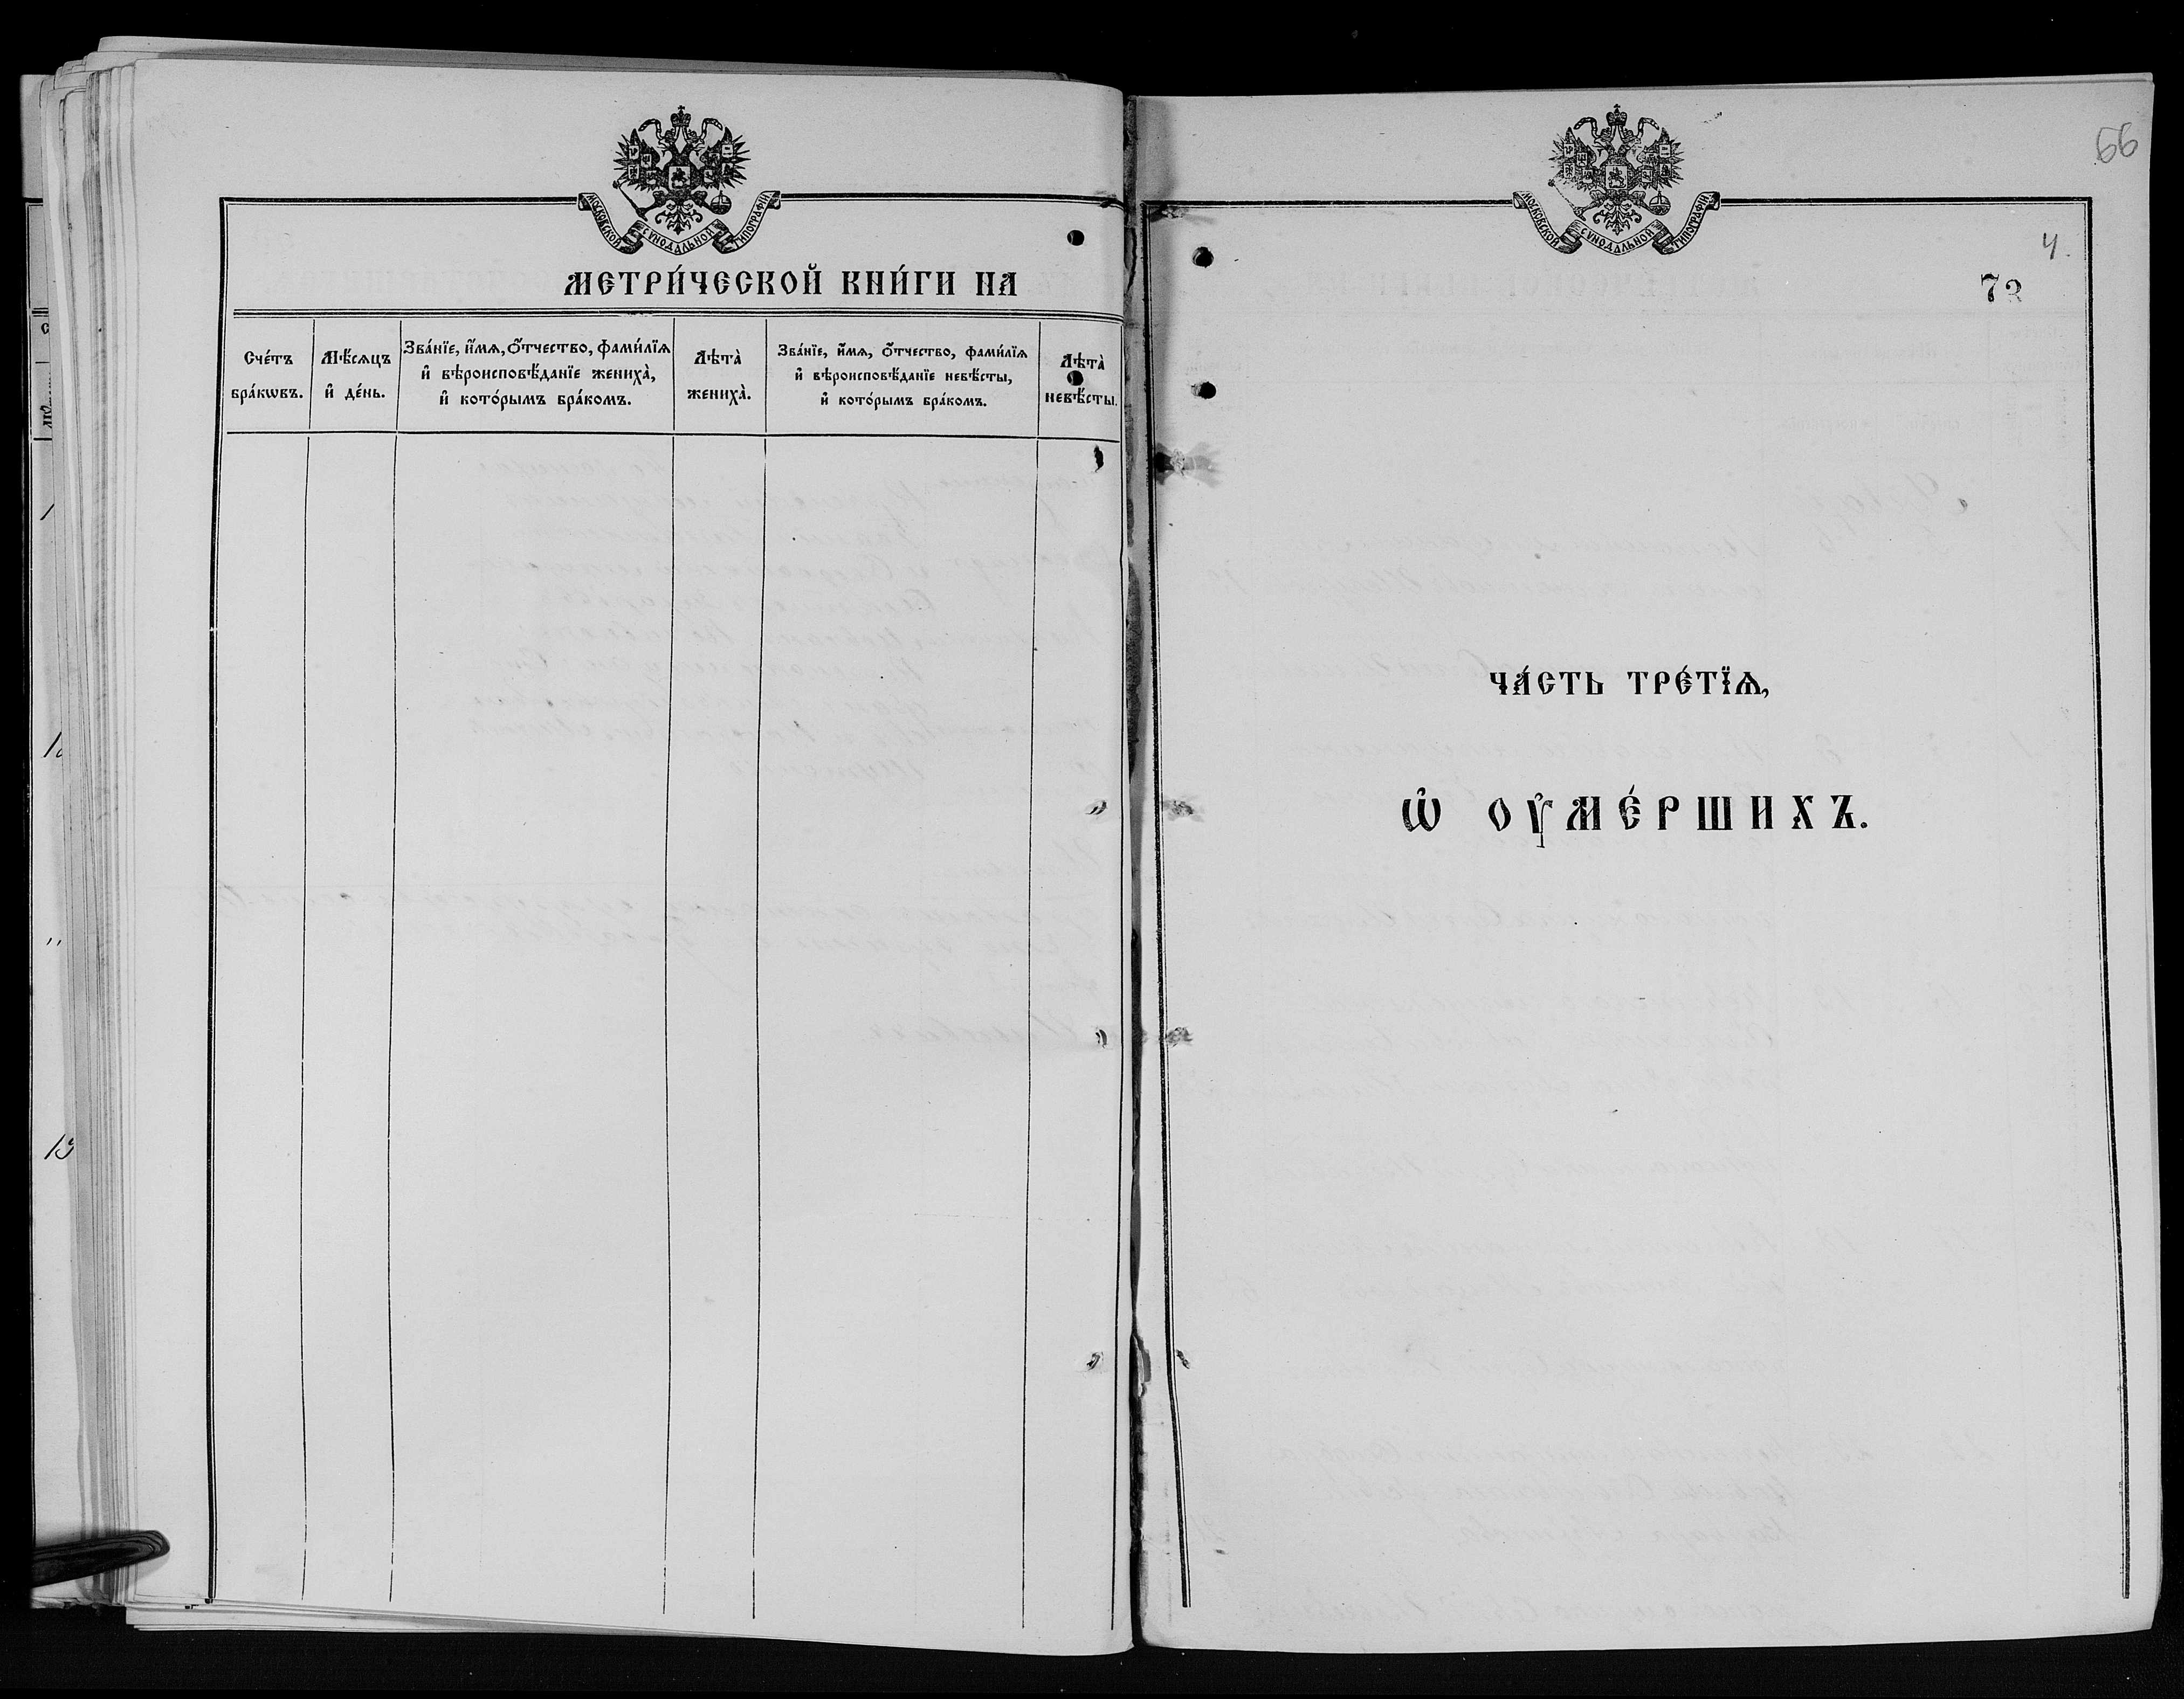 МОСКОВСКОЙ СѴНОДАЛЬНОЙ ТИПОГРАФІИ
МЕТРИ́ЧЕСКОЙ КНИ́ГИ НА
Сче́тъ бра́кѡвъ.
Мѣ́сѧцъ и҆ де́нь.
Зва́нїе, и҆́мѧ, ѻ҆́тчество, фами́лїѧ
и҆ вѣроисповѣ́данїе жениха̀,
и҆ кото́рымъ бра́комъ.
Лѣта̀ жениха̀.
Зва́нїе, и҆́мѧ, ѻ҆́тчество, фами́лїѧ
и҆ вѣроисповѣ́данїе невѣ́сты,
и҆ кото́рымъ бра́комъ.
Лѣта̀ невѣ́сты.
66
МОСКОВСКОЙ СѴНОДАЛЬНОЙ ТИПОГРАФІИ
4.
73
ЧА́СТЬ ТРЕ́ТЇѦ,
Ѡ҆ ОУ҆МЕ́РШИХЪ.